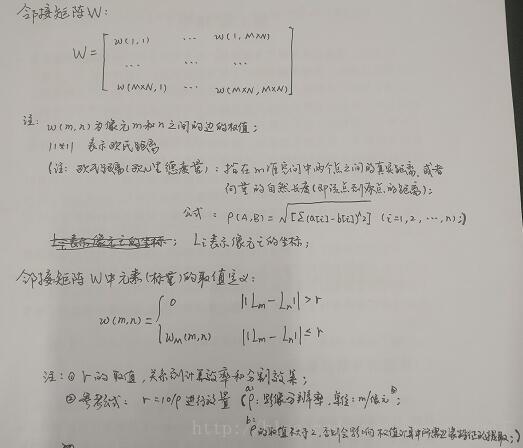 邻接矩阵W:
W = [ w(1,1) ... w(1,M×N)
... ... ...
w(M×N,1) ... w(M×N,M×N) ]
注: w(m,n)为像元m和n之间的边的权值;
||*|| 表示欧氏距离
(注: 欧氏距离(欧几里德度量): 指在m维空间中两个点之间的真实距离,或者
向量的自然长度(即该点到原点的距离);
公式: ρ(A,B)=√[Σ(a[i]-b[i])^2] (i=1,2,…,n);)
L_i表示像元i的坐标; Li表示像元i的坐标;
邻接矩阵W中元素(标量)的取值定义:
0 ||Lm-Ln||>r
w(m,n)={
wM(m,n) ||Lm-Ln||≤r
注: ① r的取值,关系到计算效率和分割效果;
② 参考公式: r=10/ρ 进行设置 (a: ρ:影像分辨率,单位:m/像元;
b:
ρ的取值不大于2,否则会影响权值计算中所需边缘特征的提取;)
http://bl